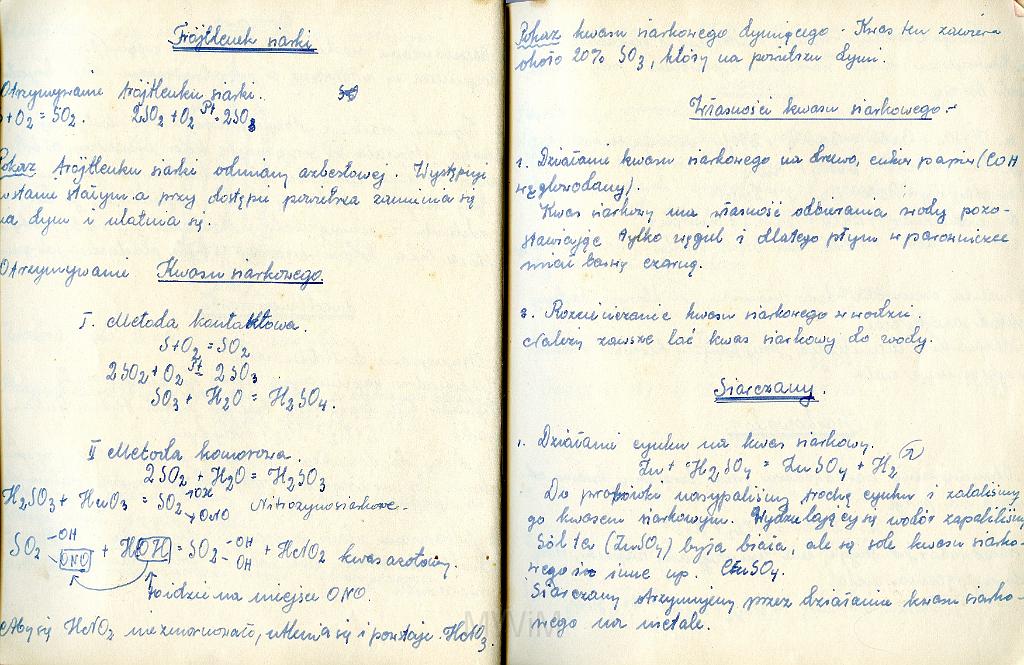 Trójtlenek siarki
Otrzymywanie trójtlenku siarki.
S+O2 = SO2. 2SO2 + O2 Pt = 2SO3
Pokaz trójtlenku siarki odmiany azbestowej. Występuje
w stanie stałym a przy dostępie powietrza zamienia się
na dym i ulatnia się.
Otrzymywanie Kwasu siarkowego.
I. Metoda kontaktowa.
S+O2 = SO2
2SO2 + O2 Pt = 2SO3
SO3 + H2O = H2SO4.
II Metoda komorowa.
2SO2 + H2O = H2SO3
H2SO3 + HNO3 = SO2 -OH Nitrozynosiarkowe-
-ONO
SO2 -OH + HOH = SO2 -OH + HNO2 kwas azotawy.
-ONO -OH
to idzie na miejsce ONO.
Aby się HNO2 nie zmarnowało, utlenia się i powstaje HNO3
Pokaz kwasu siarkowego dymiącego. Kwas ten zawiera
około 20% SO3, który na powietrzu dymi.
Własności kwasu siarkowego.-
1. Działanie kwasu siarkowego na drzewo, cukier papier (COH
węglowodany).
Kwas siarkowy ma własność odbierania wody pozo-
stawiając tylko węgiel i dlatego płyn w parowniczce
miał barwę czarną.
2. Rozcieńczanie kwasu siarkowego w wodzie.
Należy zawsze lać kwas siarkowy do wody.
Siarczany.
1. Działanie cynku na kwas siarkowy.
Zn + H2SO4 = ZnSO4 + H2
Do probówki nasypaliśmy trochę cynku i zalaliśmy
go kwasem siarkowym. Wydzielający się wodór zapaliliśmy
Sól ta (ZnSO4) była biała, ale są sole kwasu siarko-
wego inne np. CuSO4.
Siarczany otrzymujemy przez działanie kwasu siarko-
wego na metale.
MWiM